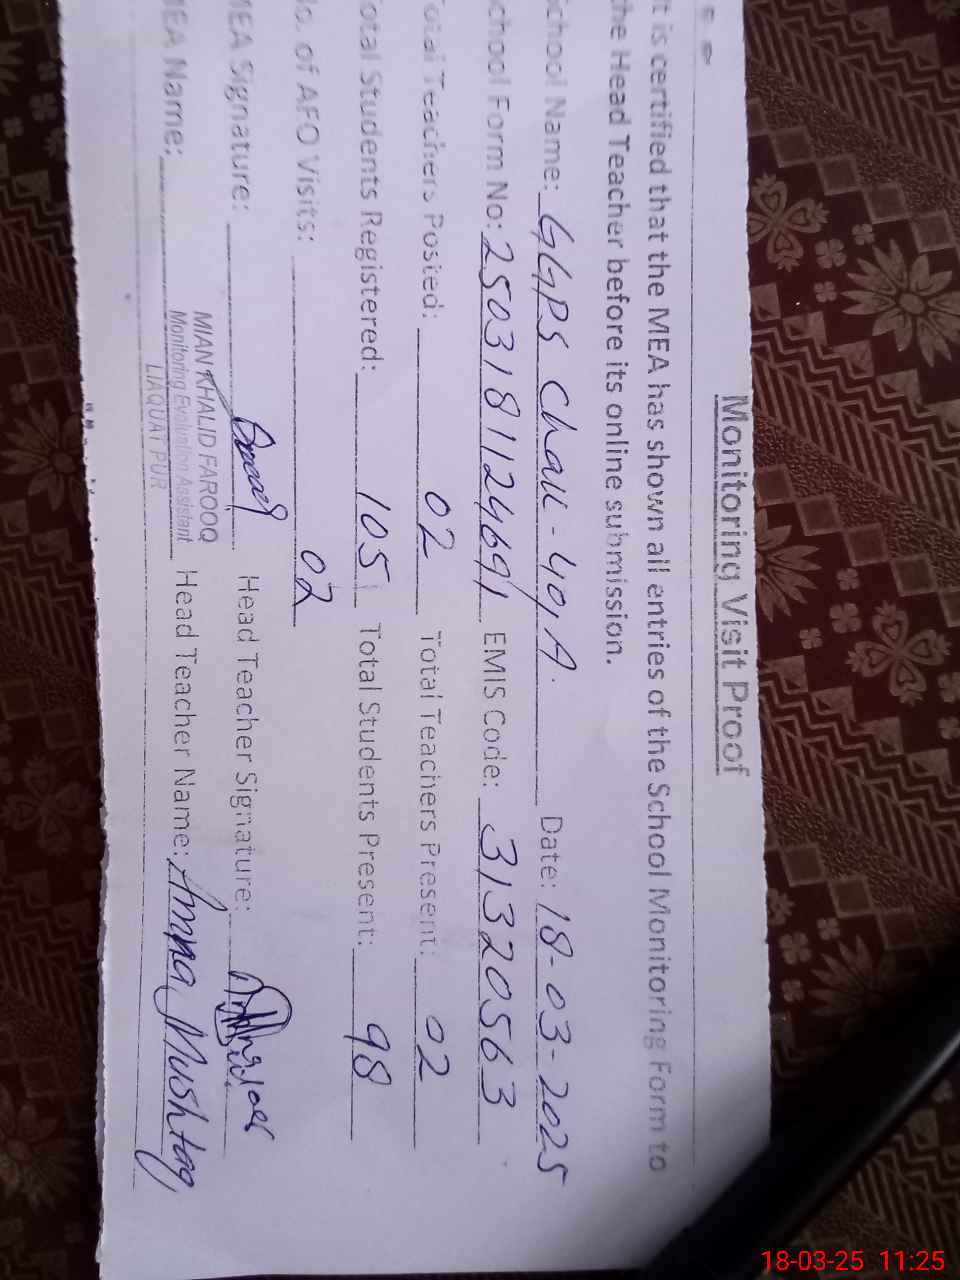 Monitoring Visit Proof
It is certified that the MEA has shown all entries of the School Monitoring Form to
the Head Teacher before its online submission.
School Name: GGPS Chak-40,A. Date: 18-03-2025
School Form No: 2503181124691 EMIS Code: 31320563
Total Teachers Posted: 02 Total Teachers Present: 02
Total Students Registered: 105 Total Students Present: 98
No. of AFO Visits: 02
MEA Signature: Head Teacher Signature:
MEA Name: MIAN KHALID FAROOQ Head Teacher Name: Amna Mushtaq
Monitoring Evaluation Assistant
LIAQUAT PUR
18-03-25 11:25